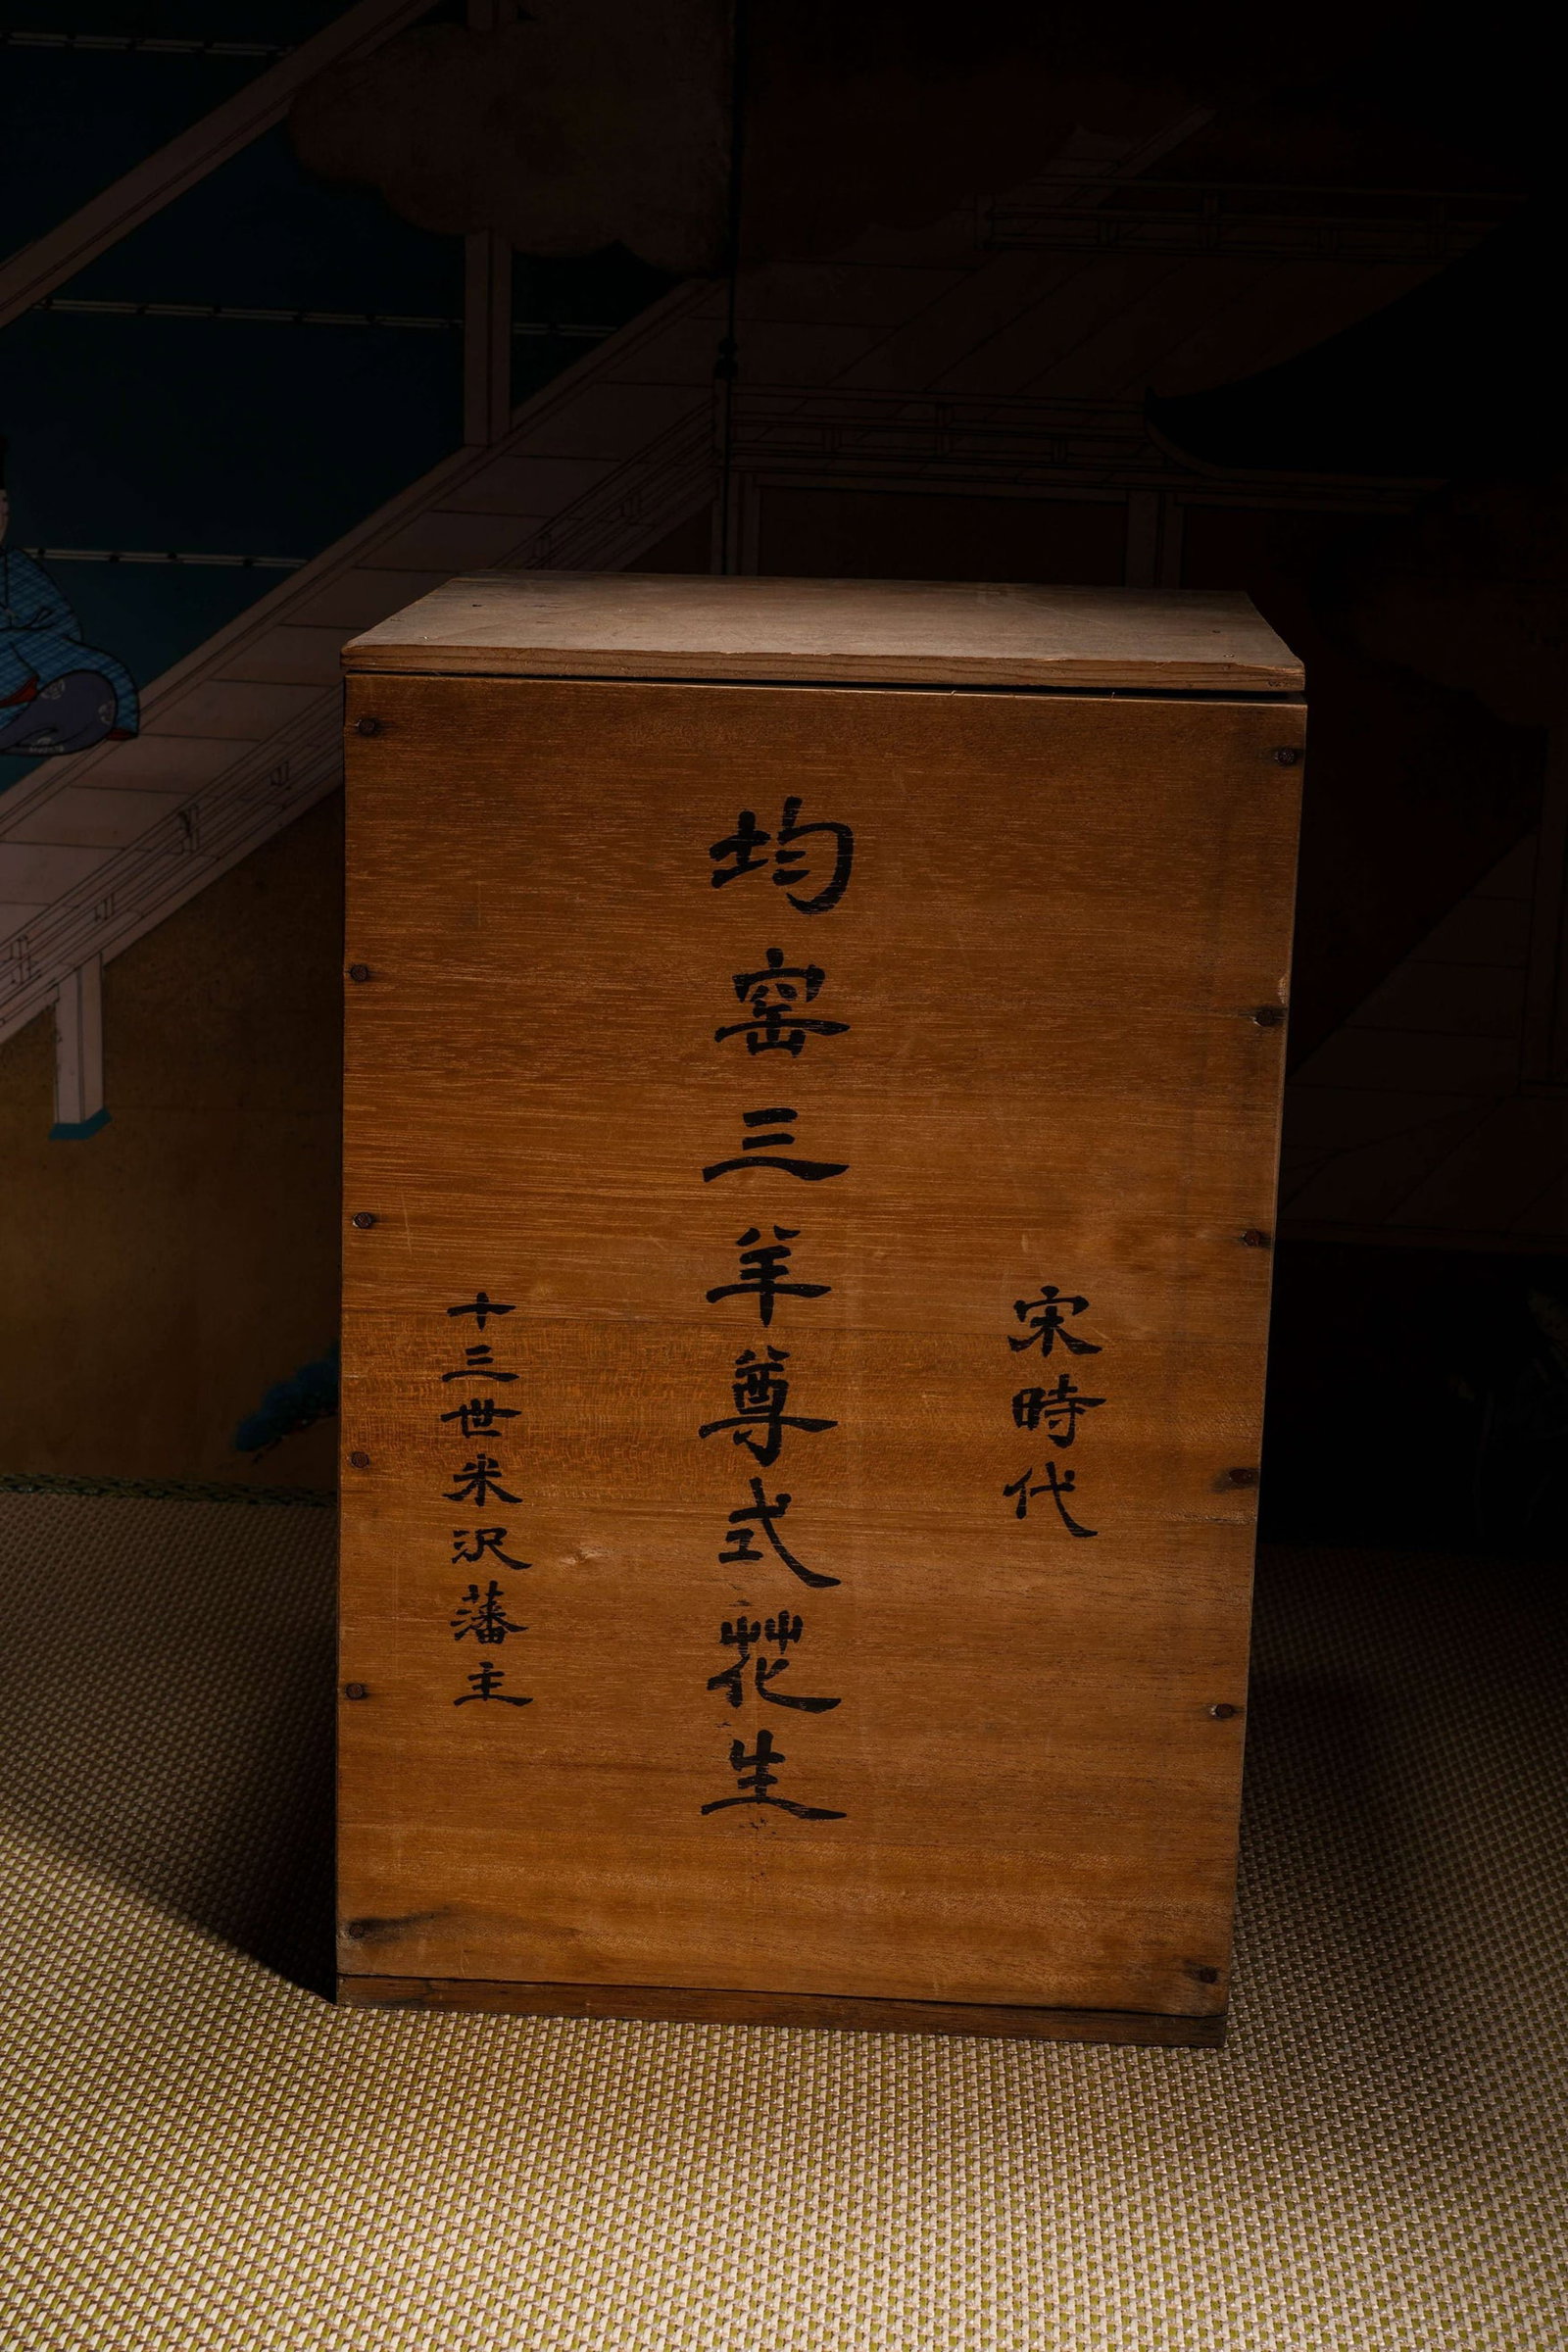 宋時代
均窑三羊尊式花生
十三世米沢藩主